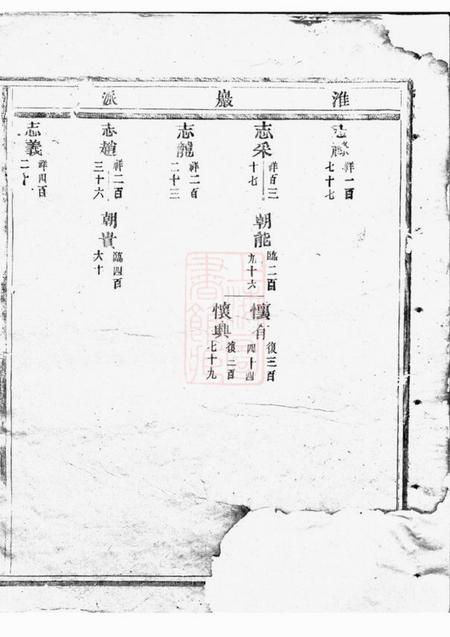 淮巖派
志
祥一百
七十七
志采
祥百三
十七
朝能
臨二百
九十六
懷有
復三百
四十四
懷興
復二百
七十九
志龍
祥二百
二十三
志趙
祥二百
三十六
朝貴
臨四百
六十
志義
祥四百
二